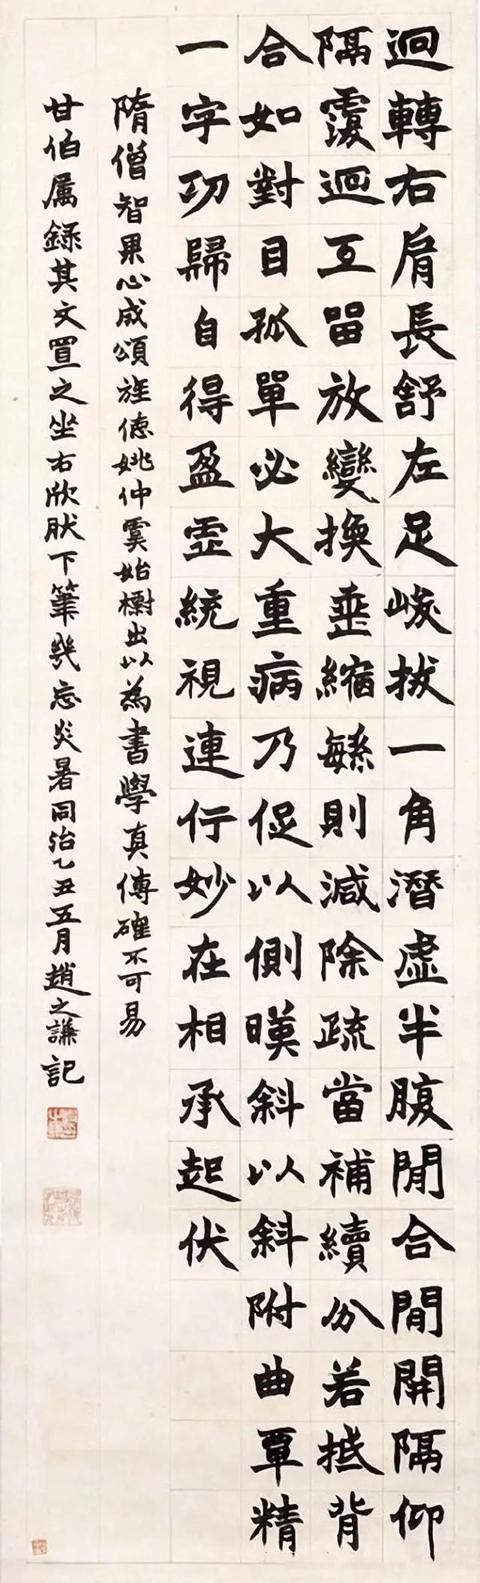 迴轉右肩長舒左足峻拔一角潛虛半腹閒合閒開隔仰
隔覆迴互留放變換垂縮緐則減除疏當補續分若抵背
合如對目孤單必大重病乃促以側暎斜以斜附曲覃精
一字功歸自得盈虛統視連行妙在相承起伏
隋僧智果心成頌旌德姚仲虞始櫥出以為書學真傳確不可易
甘伯屬錄其文置之坐右欣肰下筆幾忘炎暑同治乙丑五月趙之謙記